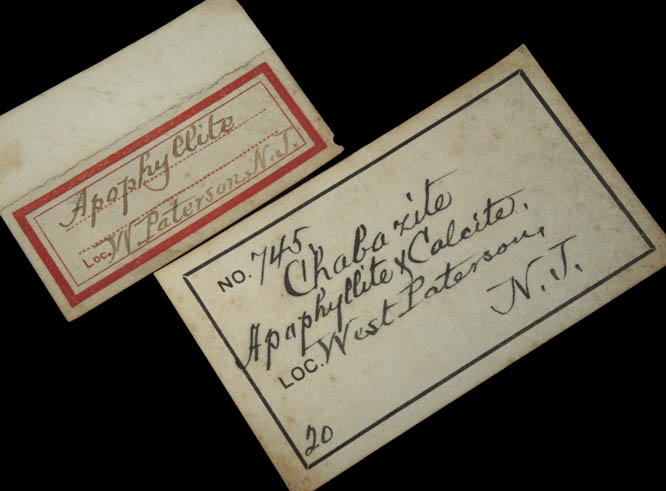 Apophyllite
LOC. W. Paterson, N.J.
NO. 745
Chabazite
Apophyllite & Calcite,
LOC. West Paterson,
N.J.
20